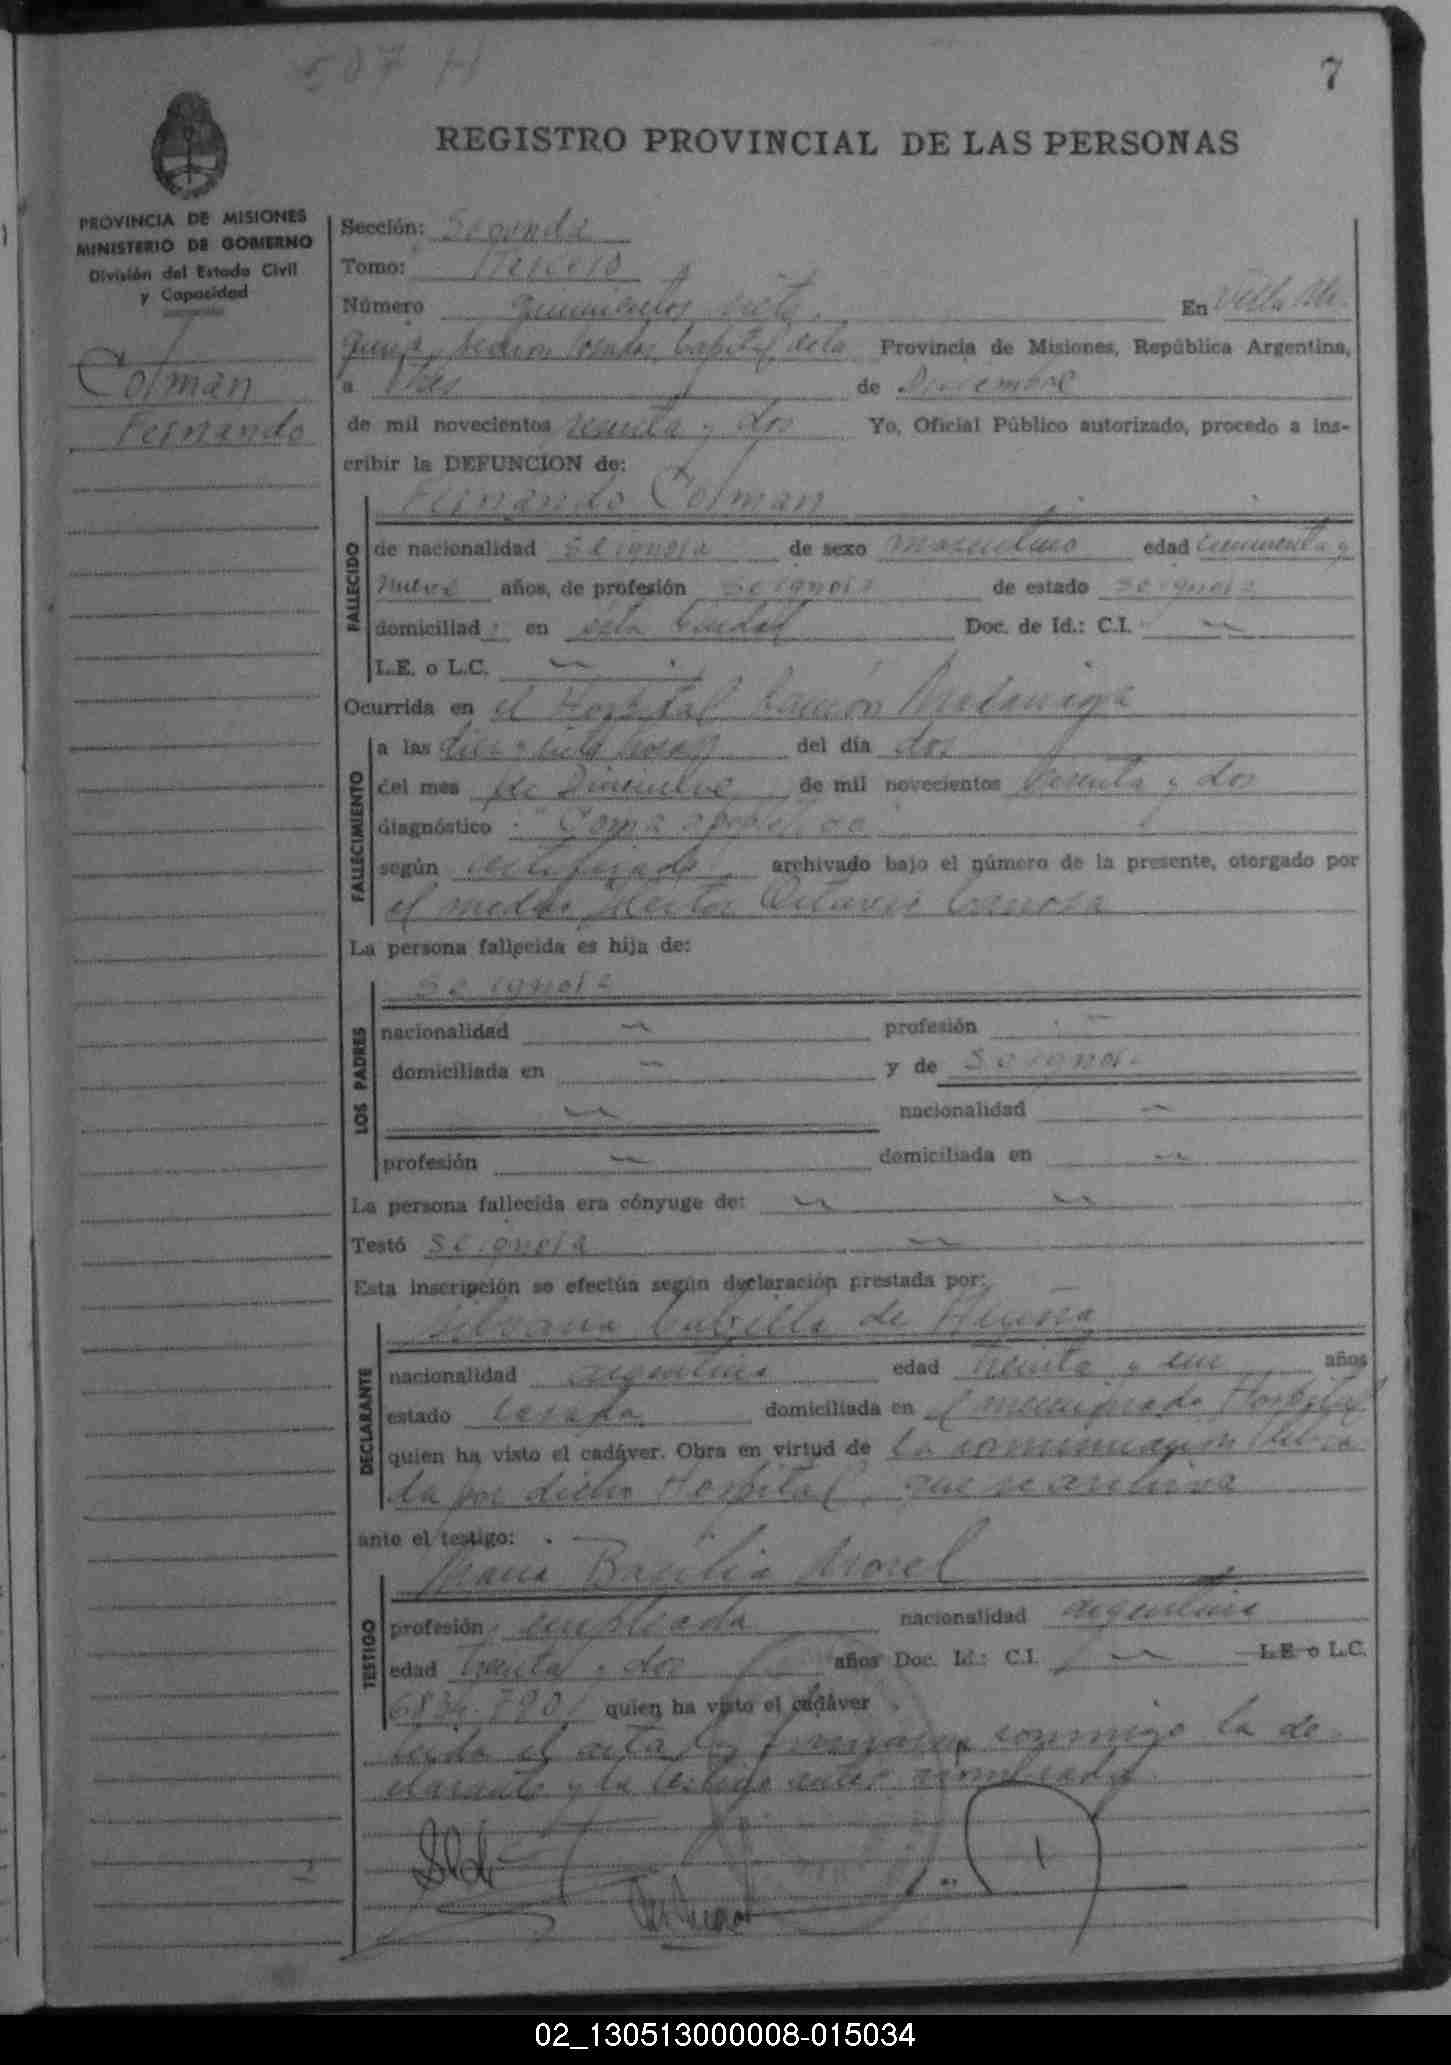 507 H
7
REGISTRO PROVINCIAL DE LAS PERSONAS
PROVINCIA DE MISIONES
MINISTERIO DE GOBIERNO
División del Estado Civil
y Capacidad
Colman
Fernando
Sección: Segunda
Tomo: Tercero
Número quinientos siete. En Villa
Provincia de Misiones, República Argentina,
a tres de Diciembre
de mil novecientos setenta y dos Yo, Oficial Público autorizado, procedo a ins-
cribir la DEFUNCION de:
Fernando Colman
FALLECIDO
de nacionalidad se ignora de sexo masculino edad cincuenta y
nueve años, de profesión se ignora de estado se ignora
domiciliad en esta Ciudad Doc. de Id.: C.I.
L.E. o L.C.
Ocurrida en el Hospital Ramón Madariaga
FALLECIMIENTO
a las del día dos
del mes de Diciembre de mil novecientos setenta y dos
diagnóstico : "Coma
según certificado archivado bajo el número de la presente, otorgado por
el medico Hector Octavio Canosa
La persona fallecida es hija de:
LOS PADRES
se ignora
nacionalidad profesión
domiciliada en y de se ignora
nacionalidad
profesión domiciliada en
La persona fallecida era cónyuge de:
Testó se ignora
Esta inscripción se efectúa según declaración prestada por:
Silvana de
DECLARANTE
nacionalidad argentina edad treinta y un años
estado casada domiciliada en el mencionado Hospital
quien ha visto el cadáver. Obra en virtud de la comunicación
da por dicho Hospital, que se archiva
ante el testigo:
Maria Basilia Morel
TESTIGO
profesión empleada nacionalidad argentina
edad treinta y dos años Doc. Id.: C.I. L.E. o L.C.
quien ha visto el cadáver
Leida el acta, la firman conmigo la de-
clarante y la testigo antes nombrada
02_130513000008-015034